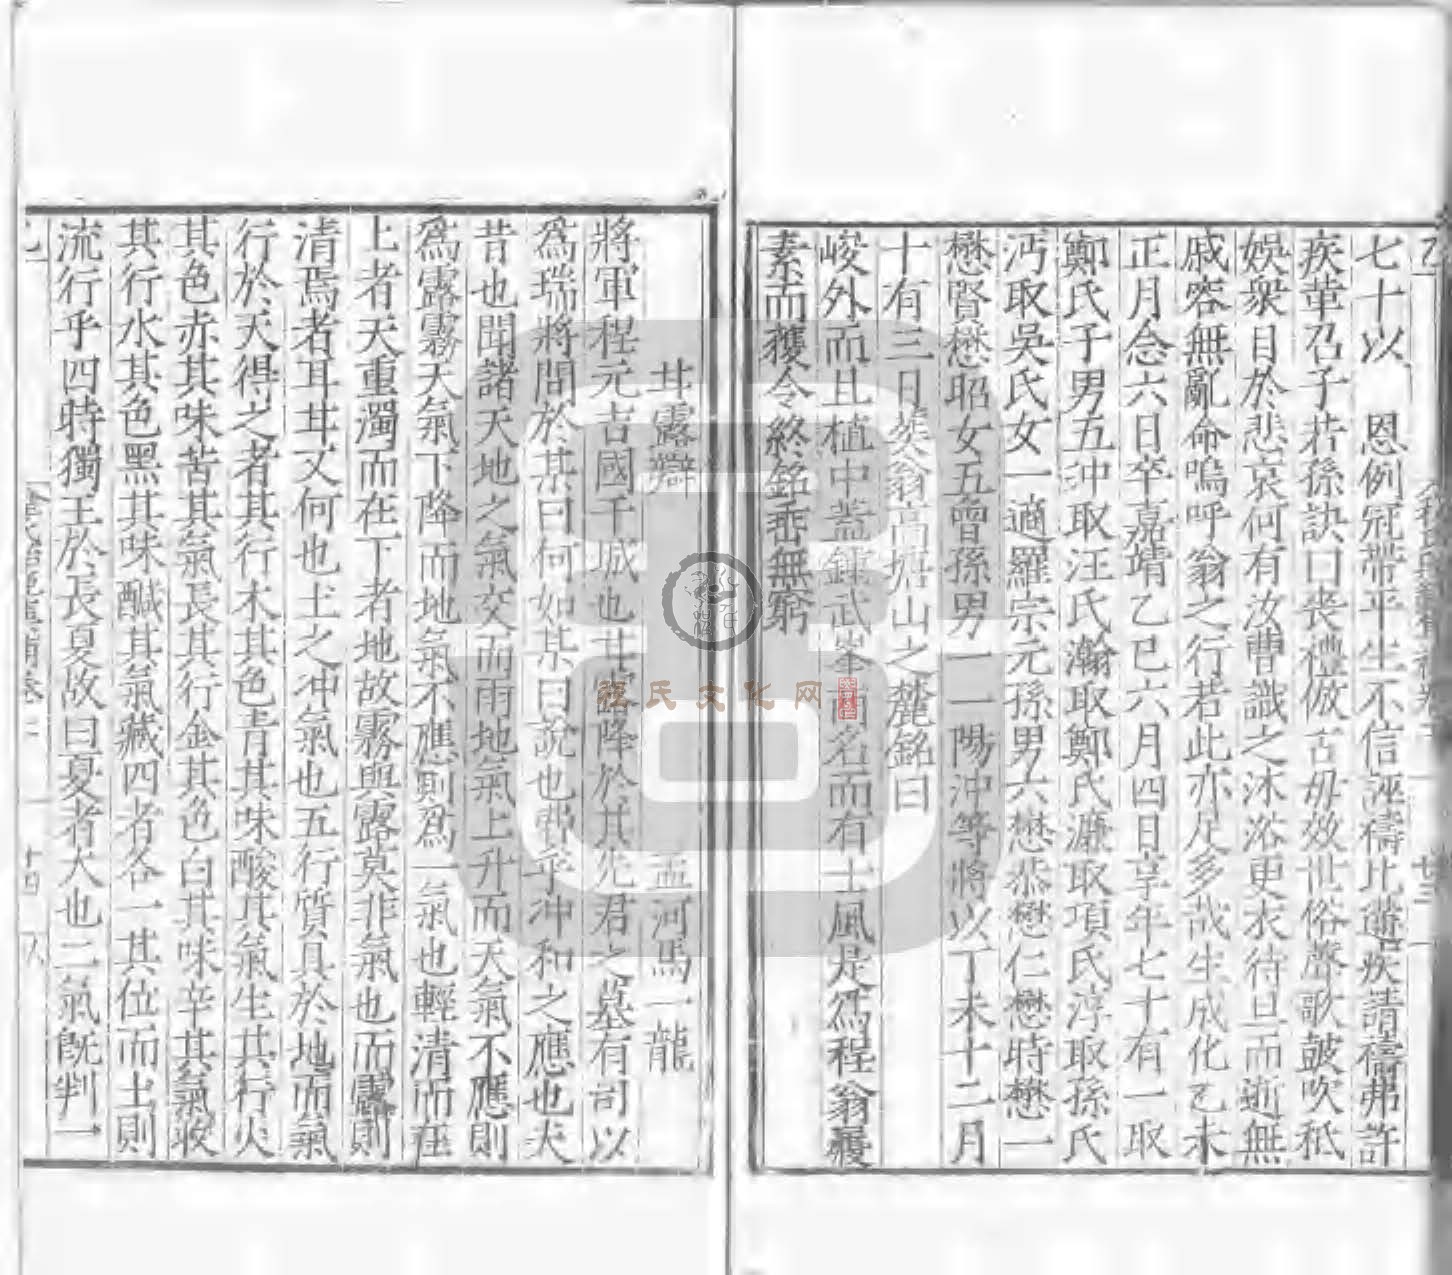 七十以　恩例冠帶平生不信誣禱比遘疾請禱弗許
疾革召子若孫訣曰喪禮倣古毋效世俗聲歌鼓吹祗
娛衆目於悲哀何有汝曹識之沐浴更衣待旦而逝無
戚容無亂命嗚呼翁之行若此亦足多哉生成化乙未
正月念六日卒嘉靖乙巳六月四日享年七十有一取
鄭氏子男五沖取汪氏瀚取鄭氏濂取項氏淳取孫氏
沔取吳氏女一適羅宗元孫男六懋恭懋仁懋時懋一
懋賢懋昭女五曾孫男一一陽沖等將以丁未十二月
十有三日葬翁高塘山之麓銘曰
峻外而且植中蓋鋒武峯名而有士風是爲程翁履
素而獲令終銘垂無窮
甘露辯　孟河馬一龍
將軍程元吉國干城也甘露降於其先君之墓有司以
爲瑞將問於某曰何如某曰說也費乎沖和之應也夫
昔也聞諸天地之氣交而雨地氣上升而天氣不應則
爲露霧天氣下降而地氣不應則爲一氣也輕清而在
上者天重濁而在下者地故霧與露莫非氣也而露則
清焉者耳甘又何也土之沖氣也五行質具於地而氣
行於天得之者其行木其色青其味酸其氣生其行火
其色赤其味苦其氣長其行金其色白其味辛其氣收
其行水其色黑其味鹹其氣藏四者各一其位而土則
流行乎四時獨王於長夏故曰夏者大也二氣既判一
十四
程氏文化网